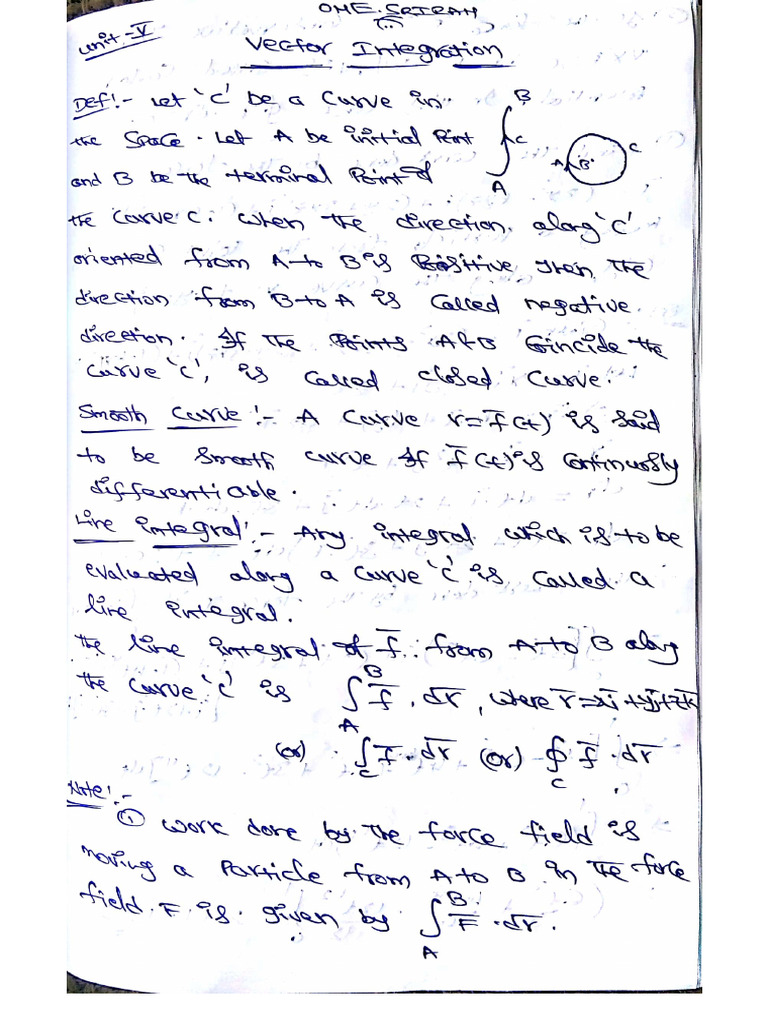 OME SRIRAM
Unit-V
Vector Integration
Def!- Let 'C' be a curve in
the space. Let A be initial Point
and B be the terminal Point of
the curve C. when the direction along 'C'
oriented from A to B is Positive then the
direction from B to A is called negative
direction. If the Points A & B Coincide the
curve 'C', is called closed curve.
Smooth Curve!- A Curve r=f̅(t) is said
to be Smooth curve If f̅(t) is continuosly
differentiable.
Line integral!- Any integral which is to be
evaluated along a curve 'C' is called a
line integral.
the line integral of f̅ from A to B along
the curve 'C' is ∫_A^B f̅ . dr̅, where r̅=xi̅+yj̅+zk̅
(or) ∫_C f̅ . dr̅ (or) ∮_C f̅ . dr̅
Note!-
① work done by the force field is
moving a Particle from A to B in the force
field F is given by ∫_A^B F̅ . dr̅.
B
C
A
A
B
C